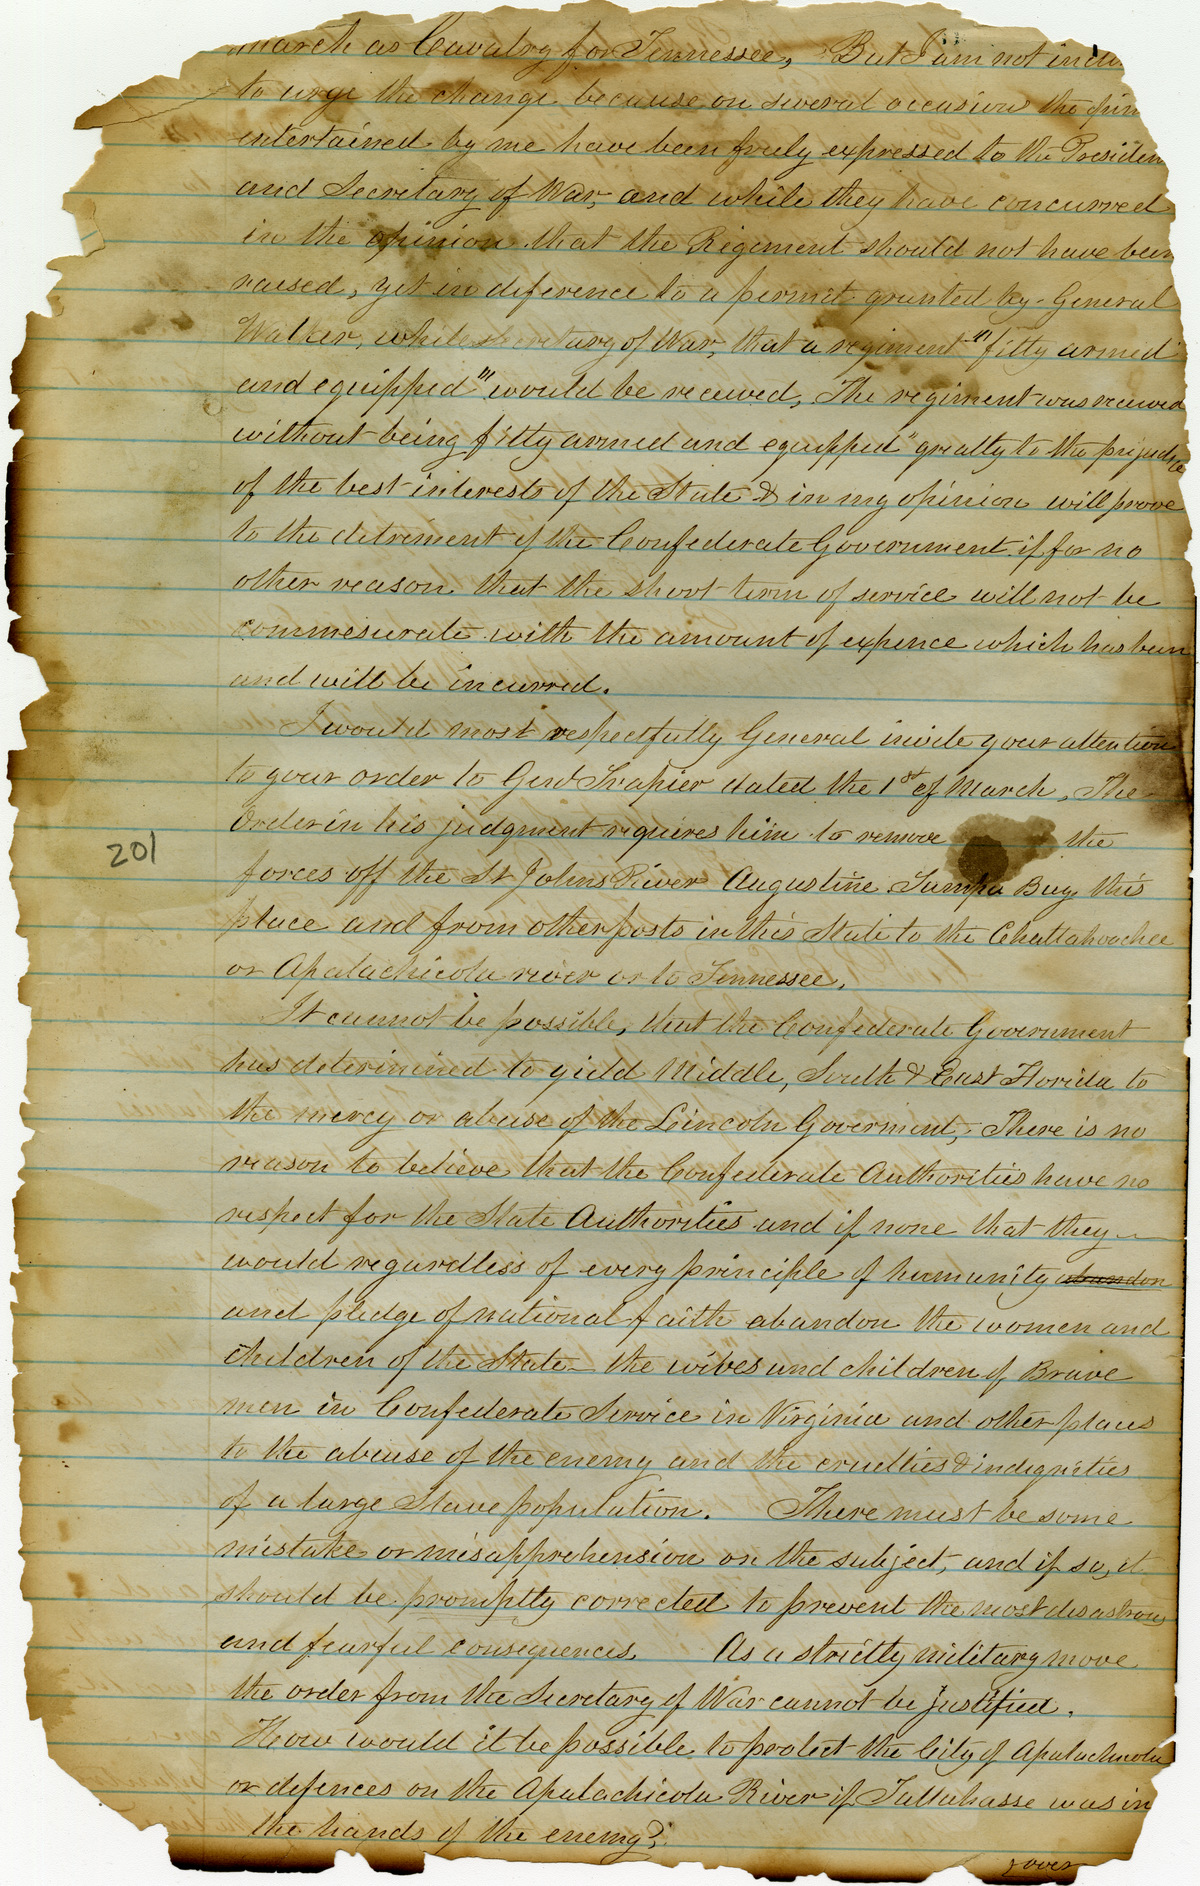 march as Cavalry for Tennessee, But I am not
to urge the change because on several occasion the
entertained by me have been freely expressed to the Presiden
and Secretary of War, and while they have concurred
in the opinion that the Regiment should not have been
raised, yet in deference to a permit granted by General
Walker, while secretary of War, that a regiment "fitly armed
and equipped" would be received, The regiment was received
without being fitly armed and equipped" greatly to the prejudice
of the best interests of the State & in my opinion will prove
to the detriment of the Confederate Government if for no
other reason that the short term of service will not be
commesurate with the amount of expence which has been
and will be incurred.
I would most respectfully General invite your attention
to your order to Genl Trapier dated the 1st of March, The
Order in his judgment requires him to remove the
forces off the St Johns River Augustine Tampa Bay this
place and from other posts in this State to the Chattahoochee
or Apalachicola river or to Tennessee.
It cannot be possible, that the Confederate Government
has determined to yield Middle, South & East Florida to
the mercy or abuse of the Lincoln Goverment, There is no
reason to believe that the Confederate Authorities have no
respect for the State Authorities and if none that they
would regardless of every principle of humanity abandon
and pledge of national faith abandon the women and
children of the State the wives and children of Brave
men in Confederate Service in Virginia and other places
to the abuse of the enemy and the cruelties & indignities
of a large Slave population. There must be some
mistake or misapprehension on the subject, and if so, it
should be promptly corrected to prevent the most disastrous
and fearful consequences. As a strictly military move
the order from the Secretary of War cannot be justified.
How would it be possible to protect the City of Apalachicola
or defences on the Apalachicola River if Tallahasse was in
the hands of the enemy?
over
201